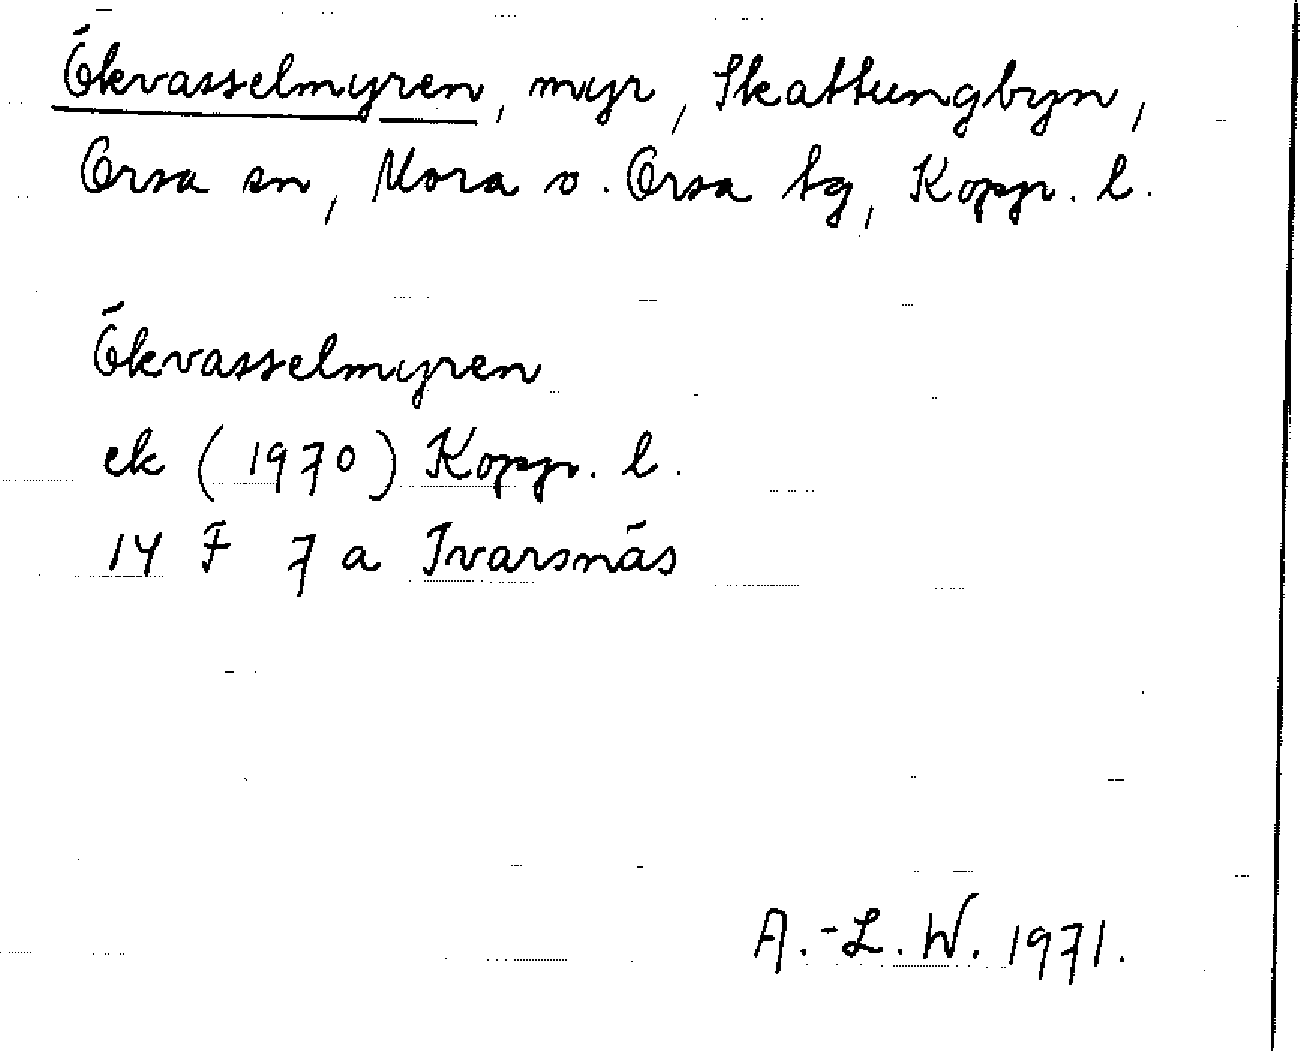 Ökvasselmyren, myr, Skattungbyn,
Orsa sn, Mora o. Orsa tg, Kopp. l.
Ökvasselmyren
ek (1970) Kopp. l.
14 F 7 a Ivarsnäs
A.-L. W. 1971.